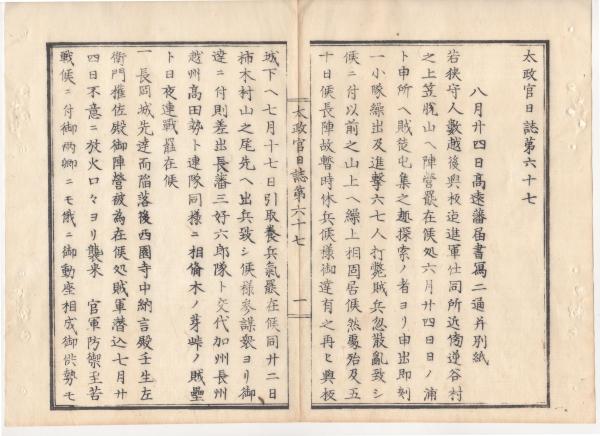 太政官日誌第六十七
八月廿四日高遠藩届書寫二通并別紙
若狭守人數越後與板迄進軍仕同所近傍逆谷村
之上笠脱山ヘ陣營罷在候処六月廿四日日ノ浦
ト申所ヘ賊徒屯集之趣探索ノ者ヨリ申出即刻
一小隊繰出及進撃六七人打斃賊兵忽散亂致シ
候ニ付以前之山上ヘ繰上相固居候然處殆及五
十日候長陣故暫時休兵候様御達有之再ヒ與板
太政官日誌第六十七
一
城下ヘ七月十七日引取養兵氣罷在候同廿二日
柿木村山之尾先ヘ出兵致シ候様参謀衆ヨリ御
達ニ付則差出長藩三好六郎隊ト交代加州長州
越州高田勢ト連隊同様ニ相備木ノ芽峠ノ賊壘
ト日夜連戰罷在候
一長岡城先達而陥落後西園寺中納言殿壬生左
衛門権佐殿御陣營被為在候処賊軍潜込七月廿
四日不意ニ放火口々ヨリ襲来 官軍防禦至苦
戰候ニ付御両卿ニモ俄ニ御動座相成御供勢モ